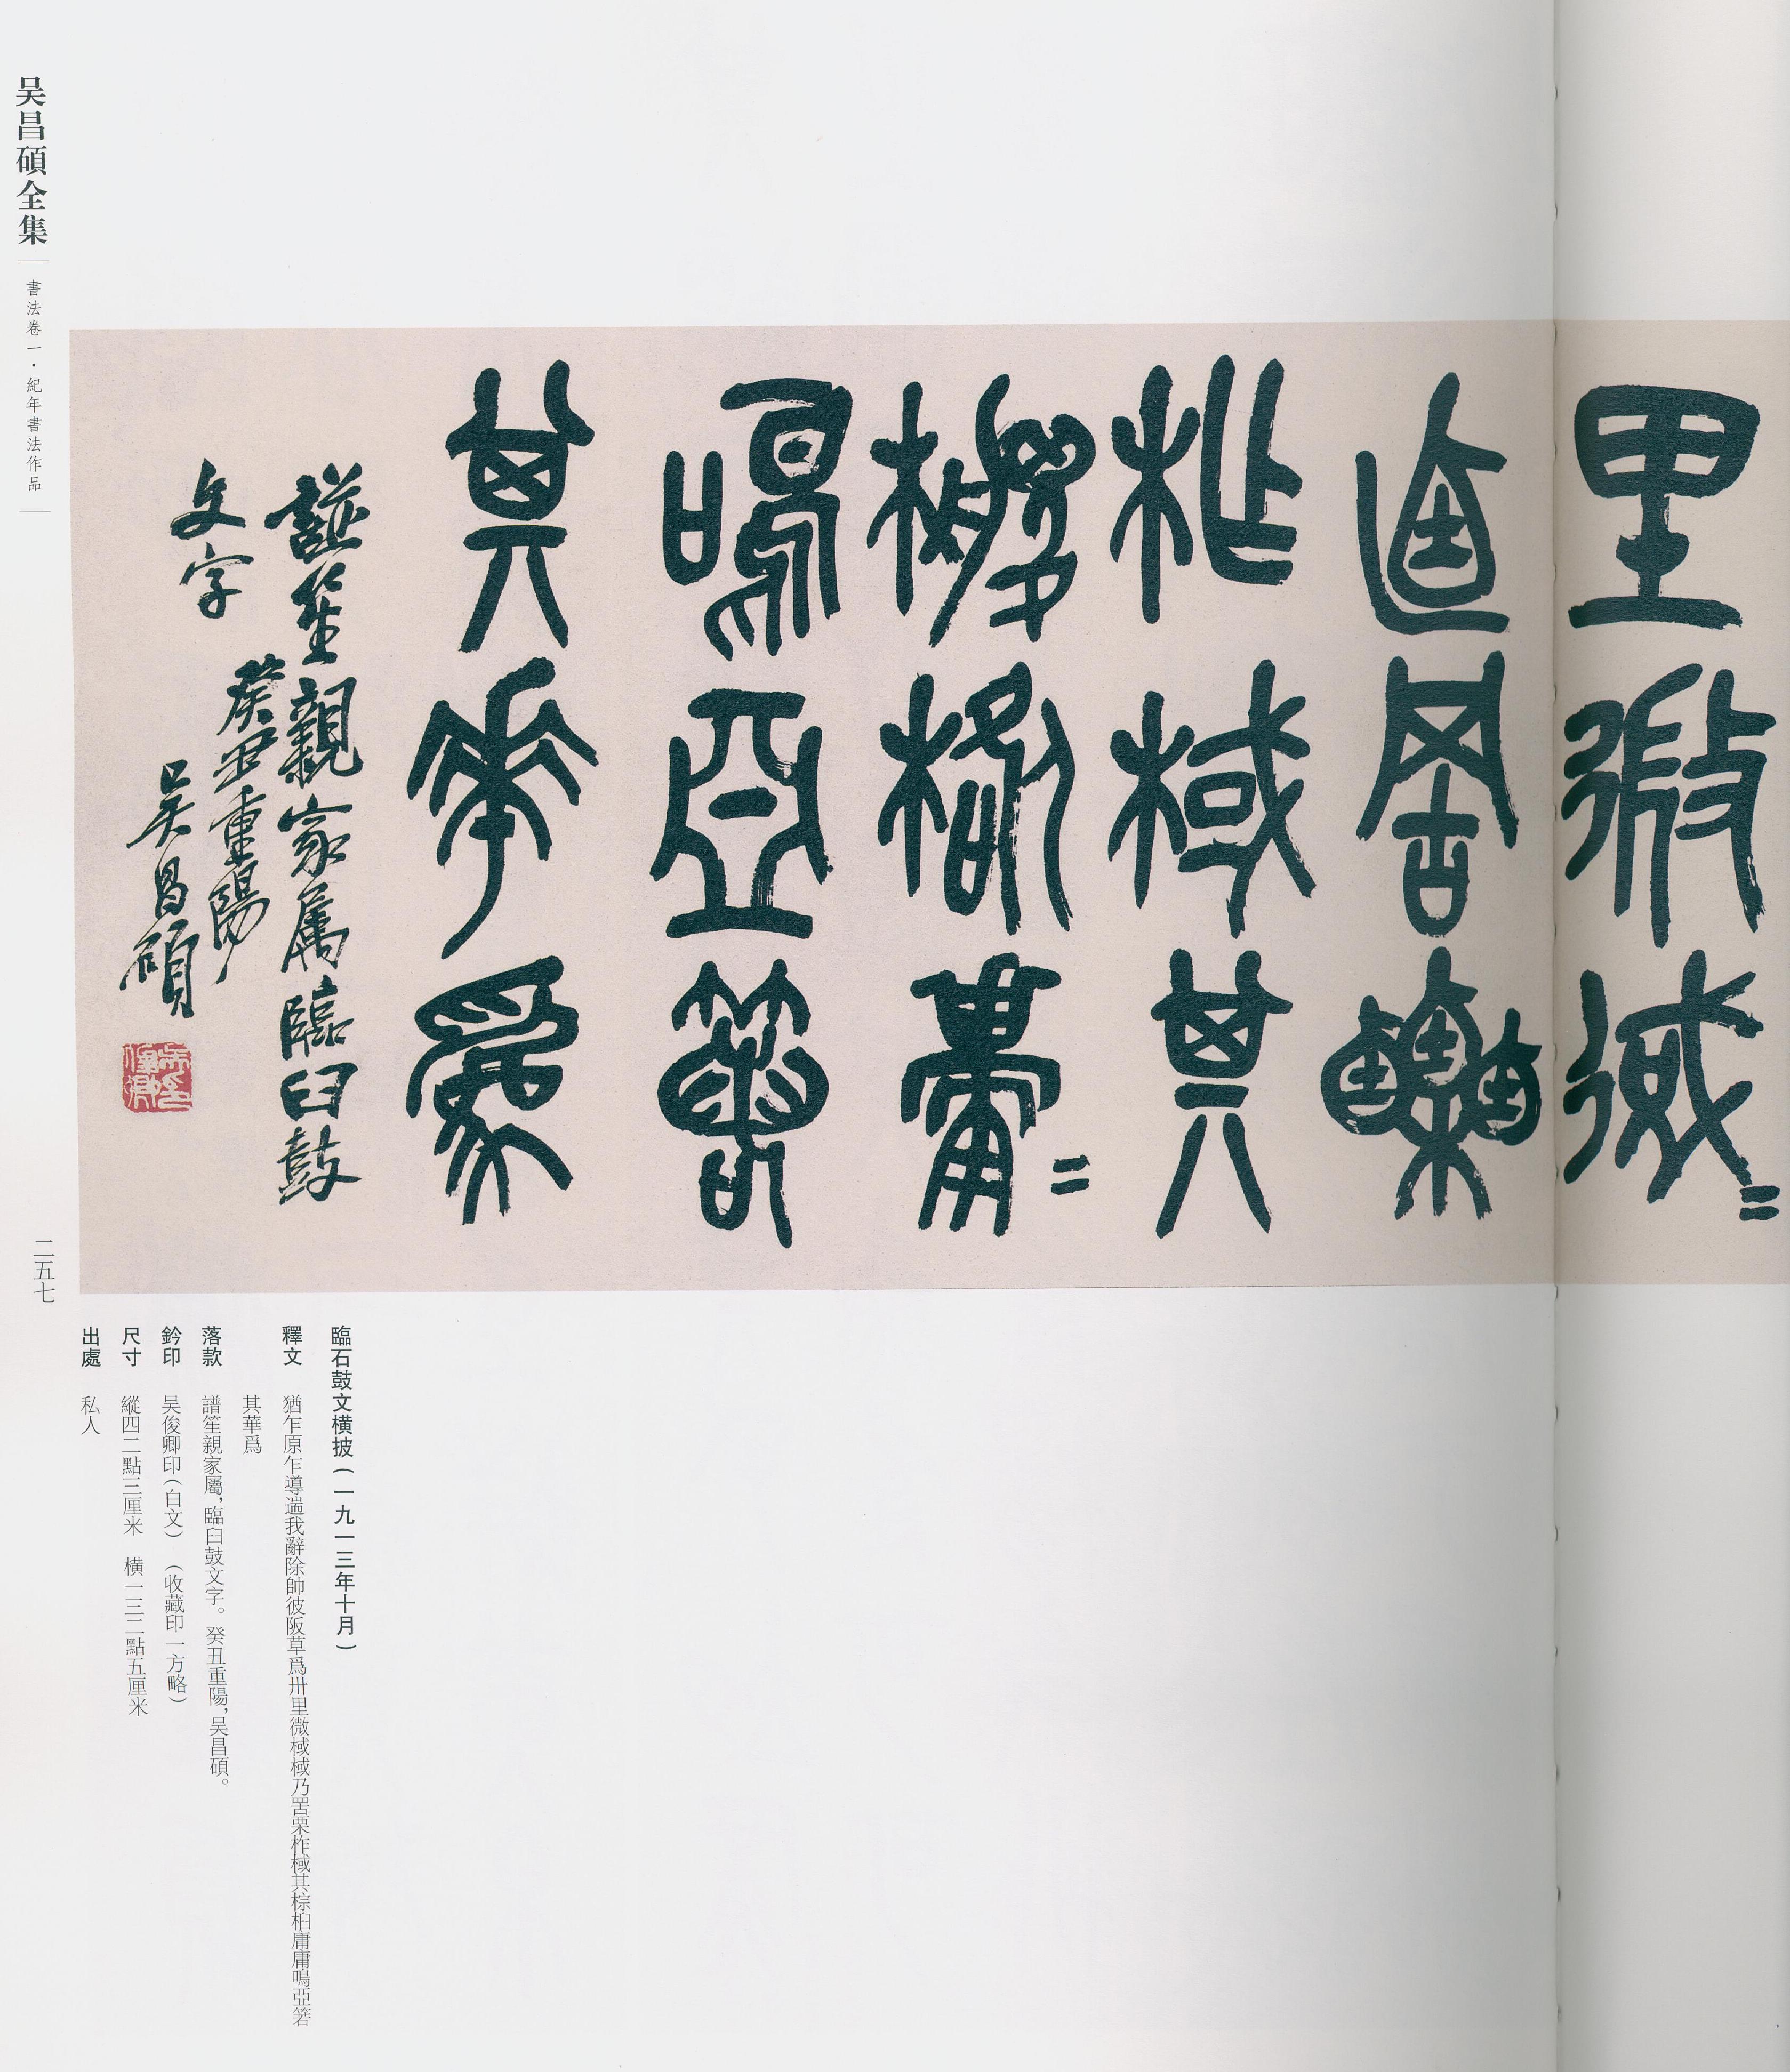 里微𣗥〻
逌罟栗
柞棫其
椶楛𩫏〻
鳴亞箬
其華爲
譜笙親家屬臨臼鼓
文字
癸丑重陽
吴昌碩
臨石鼓文横披(一九一三年十月)
釋文 猶乍原乍導遄我辭除帥彼阪草爲卅里微棫棫乃罟栗柞棫其棕楛庸庸鳴亞箬
其華爲
落款 譜笙親家屬,臨臼鼓文字。癸丑重陽,吴昌碩。
鈐印 吴俊卿印(白文) (收藏印一方略)
尺寸 縱四二點三厘米 横一三二點五厘米
出處 私人
吴昌碩全集
書法卷一·紀年書法作品
二五七